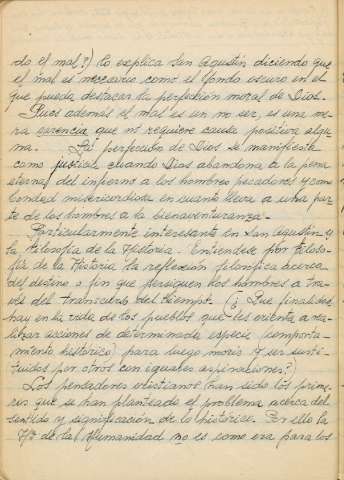 do el mal?) lo explica San Agustín diciendo que
el mal es necesario como el fondo oscuro en el
que pueda destacar la perfección moral de Dios.
Pues además el mal es un no ser, es una me-
ra carencia que no requiere causa positiva algu-
na. La perfección de Dios se manifiesta
como justicia cuando Dios abandona a la pena
eterna del infierno a los hombres pecadores y como
bondad misericordiosa en cuanto lleva a una par-
te de los hombres a la bienaventuranza.
Particularmente interesante en San Agustín y
la Filosofía de la Historia. Entiendese por Filoso-
fía de la Historia la reflexión filosófica acerca
del destino o fin que persiguen los hombres a tra-
vés del transcurso del tiempo. (¿ Qué finalidad
hay en la vida de los pueblos que les orienta a rea-
lizar acciones de determinada especie (comporta-
miento histórico) para luego morir y ser susti-
tuidos por otros con iguales aspiraciones?)
Los pensadores cristianos han sido los prime-
ros que se han planteado el problema acerca del
sentido y significación de lo histórico. Por ello la
Hª de la Humanidad no es como era para los